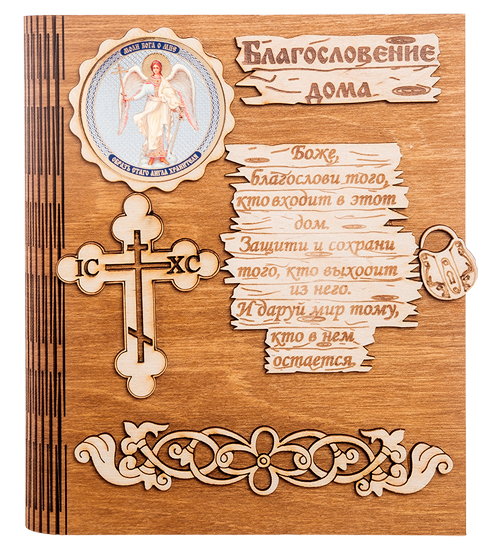 МОЛИ БОГА О МНЕ
ОБРАЗЪ СТАГО АНГЛА ХРАНИТЕЛЯ
Благословение
дома
Боже,
благослови того,
кто входит в этот
дом.
Защити и сохрани
того, кто выходит
из него.
И даруй мир тому,
кто в нем
остается.
IC XC